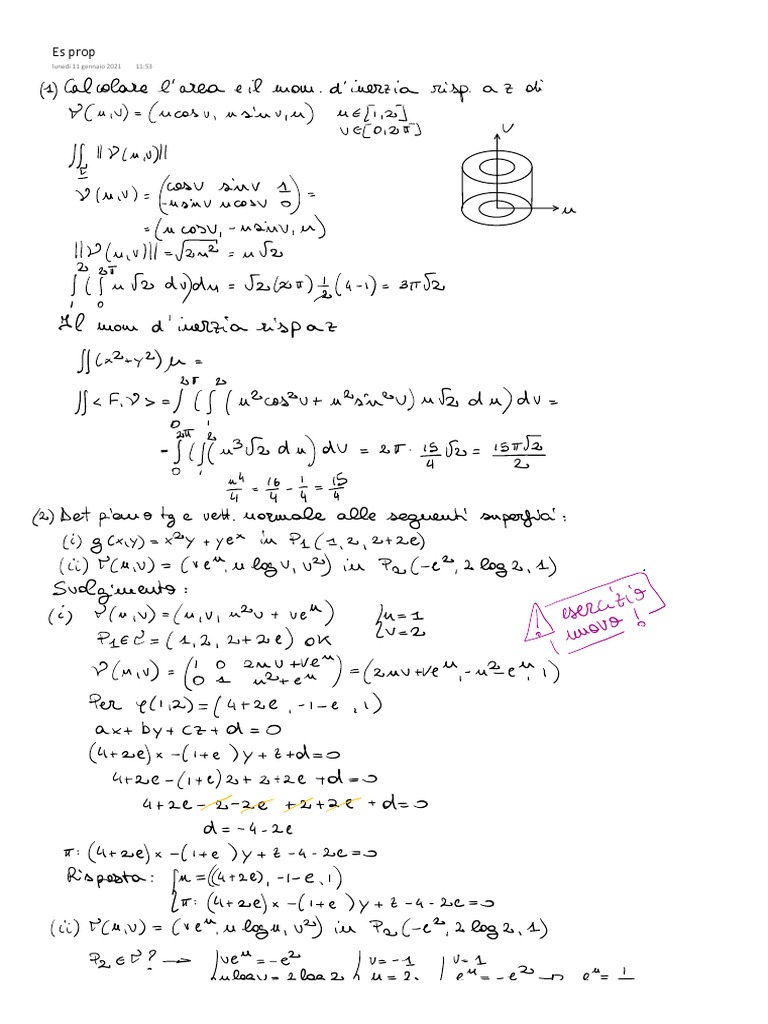 Es prop
lunedì 11 gennaio 2021 11:53
(1) Calcolare l'area e il mom. d'inerzia risp. a z di
r(u,v) = (u cos v, u sin v, u) u∈[1,2]
v∈[0,2π]
v
u
∬ ||ν(u,v)||
ν(u,v) = (cos v sin v 1
-u sin v u cos v 0) =
= (u cos v, -u sin v, u)
||ν(u,v)|| = √2u² = u√2
∫₁² (∫₀^2π u√2 dv) du = √2 (2π) 1/2 (4-1) = 3π√2
Il mom d'inerzia risp a z
∬(x²+y²) μ =
∬ < F, ν > = ∫₀^2π (∫₁² (u² cos² v + u² sin² v) u√2 du) dv =
- ∫₀^2π (∫₁² (u³ √2 du) dv = 2π · 15/4 √2 = 15π√2/2
u⁴/4 = 16/4 - 1/4 = 15/4
(2) Det piano tg e vett. normale alle seguenti superfici:
(i) g(x,y) = x²y + ye^x in P₁(1, 2, 2+2e)
(ii) r(u,v) = (ve^u, u log v, v²) in P₂(-e², 2 log 2, 1)
Svolgimento:
(i) r(u,v) = (u, v, u²v + ve^u) {u=1
v=2
esercizio
nuovo!
P₁∈r = (1, 2, 2+2e) OK
ν(u,v) = (1 0 2uv+ve^u
0 1 u²+e^u) = (2uv+ve^u, -u²-e^u, 1)
Per φ(1,2) = (4+2e, -1-e, 1)
ax + by + cz + d = 0
(4+2e)x -(1+e)y + z + d = 0
4+2e -(1+e)2 + 2+2e + d = 0
4+2e -2-2e +2+2e + d = 0
d = -4-2e
π: (4+2e)x -(1+e)y + z -4-2e = 0
Risposta: {u = ((4+2e), -1-e, 1)
π: (4+2e)x -(1+e)y + z -4-2e = 0
(ii) r(u,v) = (ve^u, u log u, v²) in P₂(-e², 2 log 2, 1)
P₂ ∈ r? → {ve^u = -e² {v = -1 {v = 1
u log v = 2 log 2 u = 2 e^u = -e² ⇒ e^u = 1